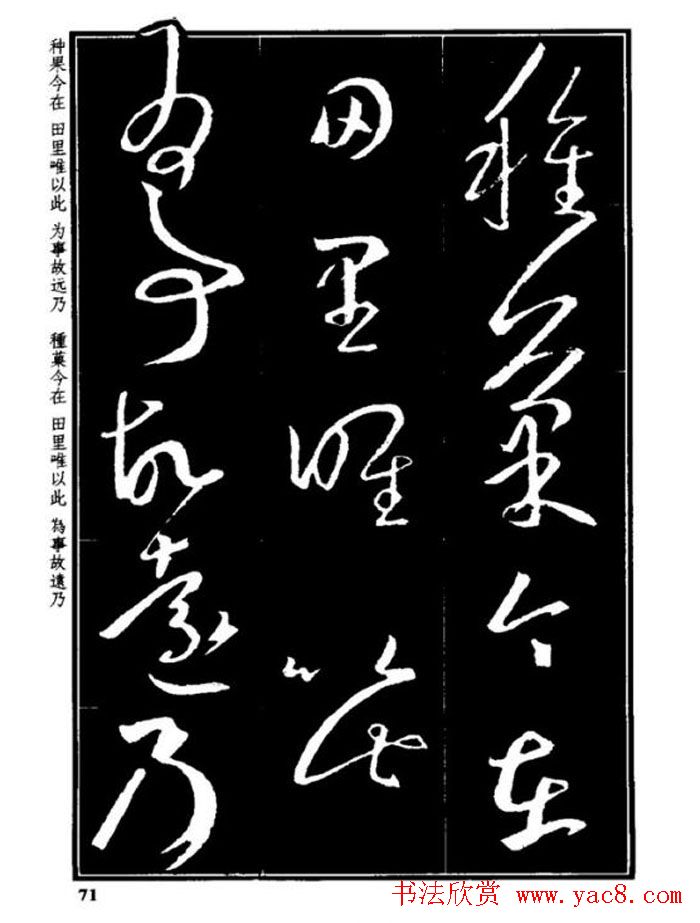 種菓今在
田里唯以此
為事故遠乃
种果今在 田里唯以此 为事故远乃 種菓今在 田里唯以此 為事故遠乃
71
书法欣赏 www.yac8.com